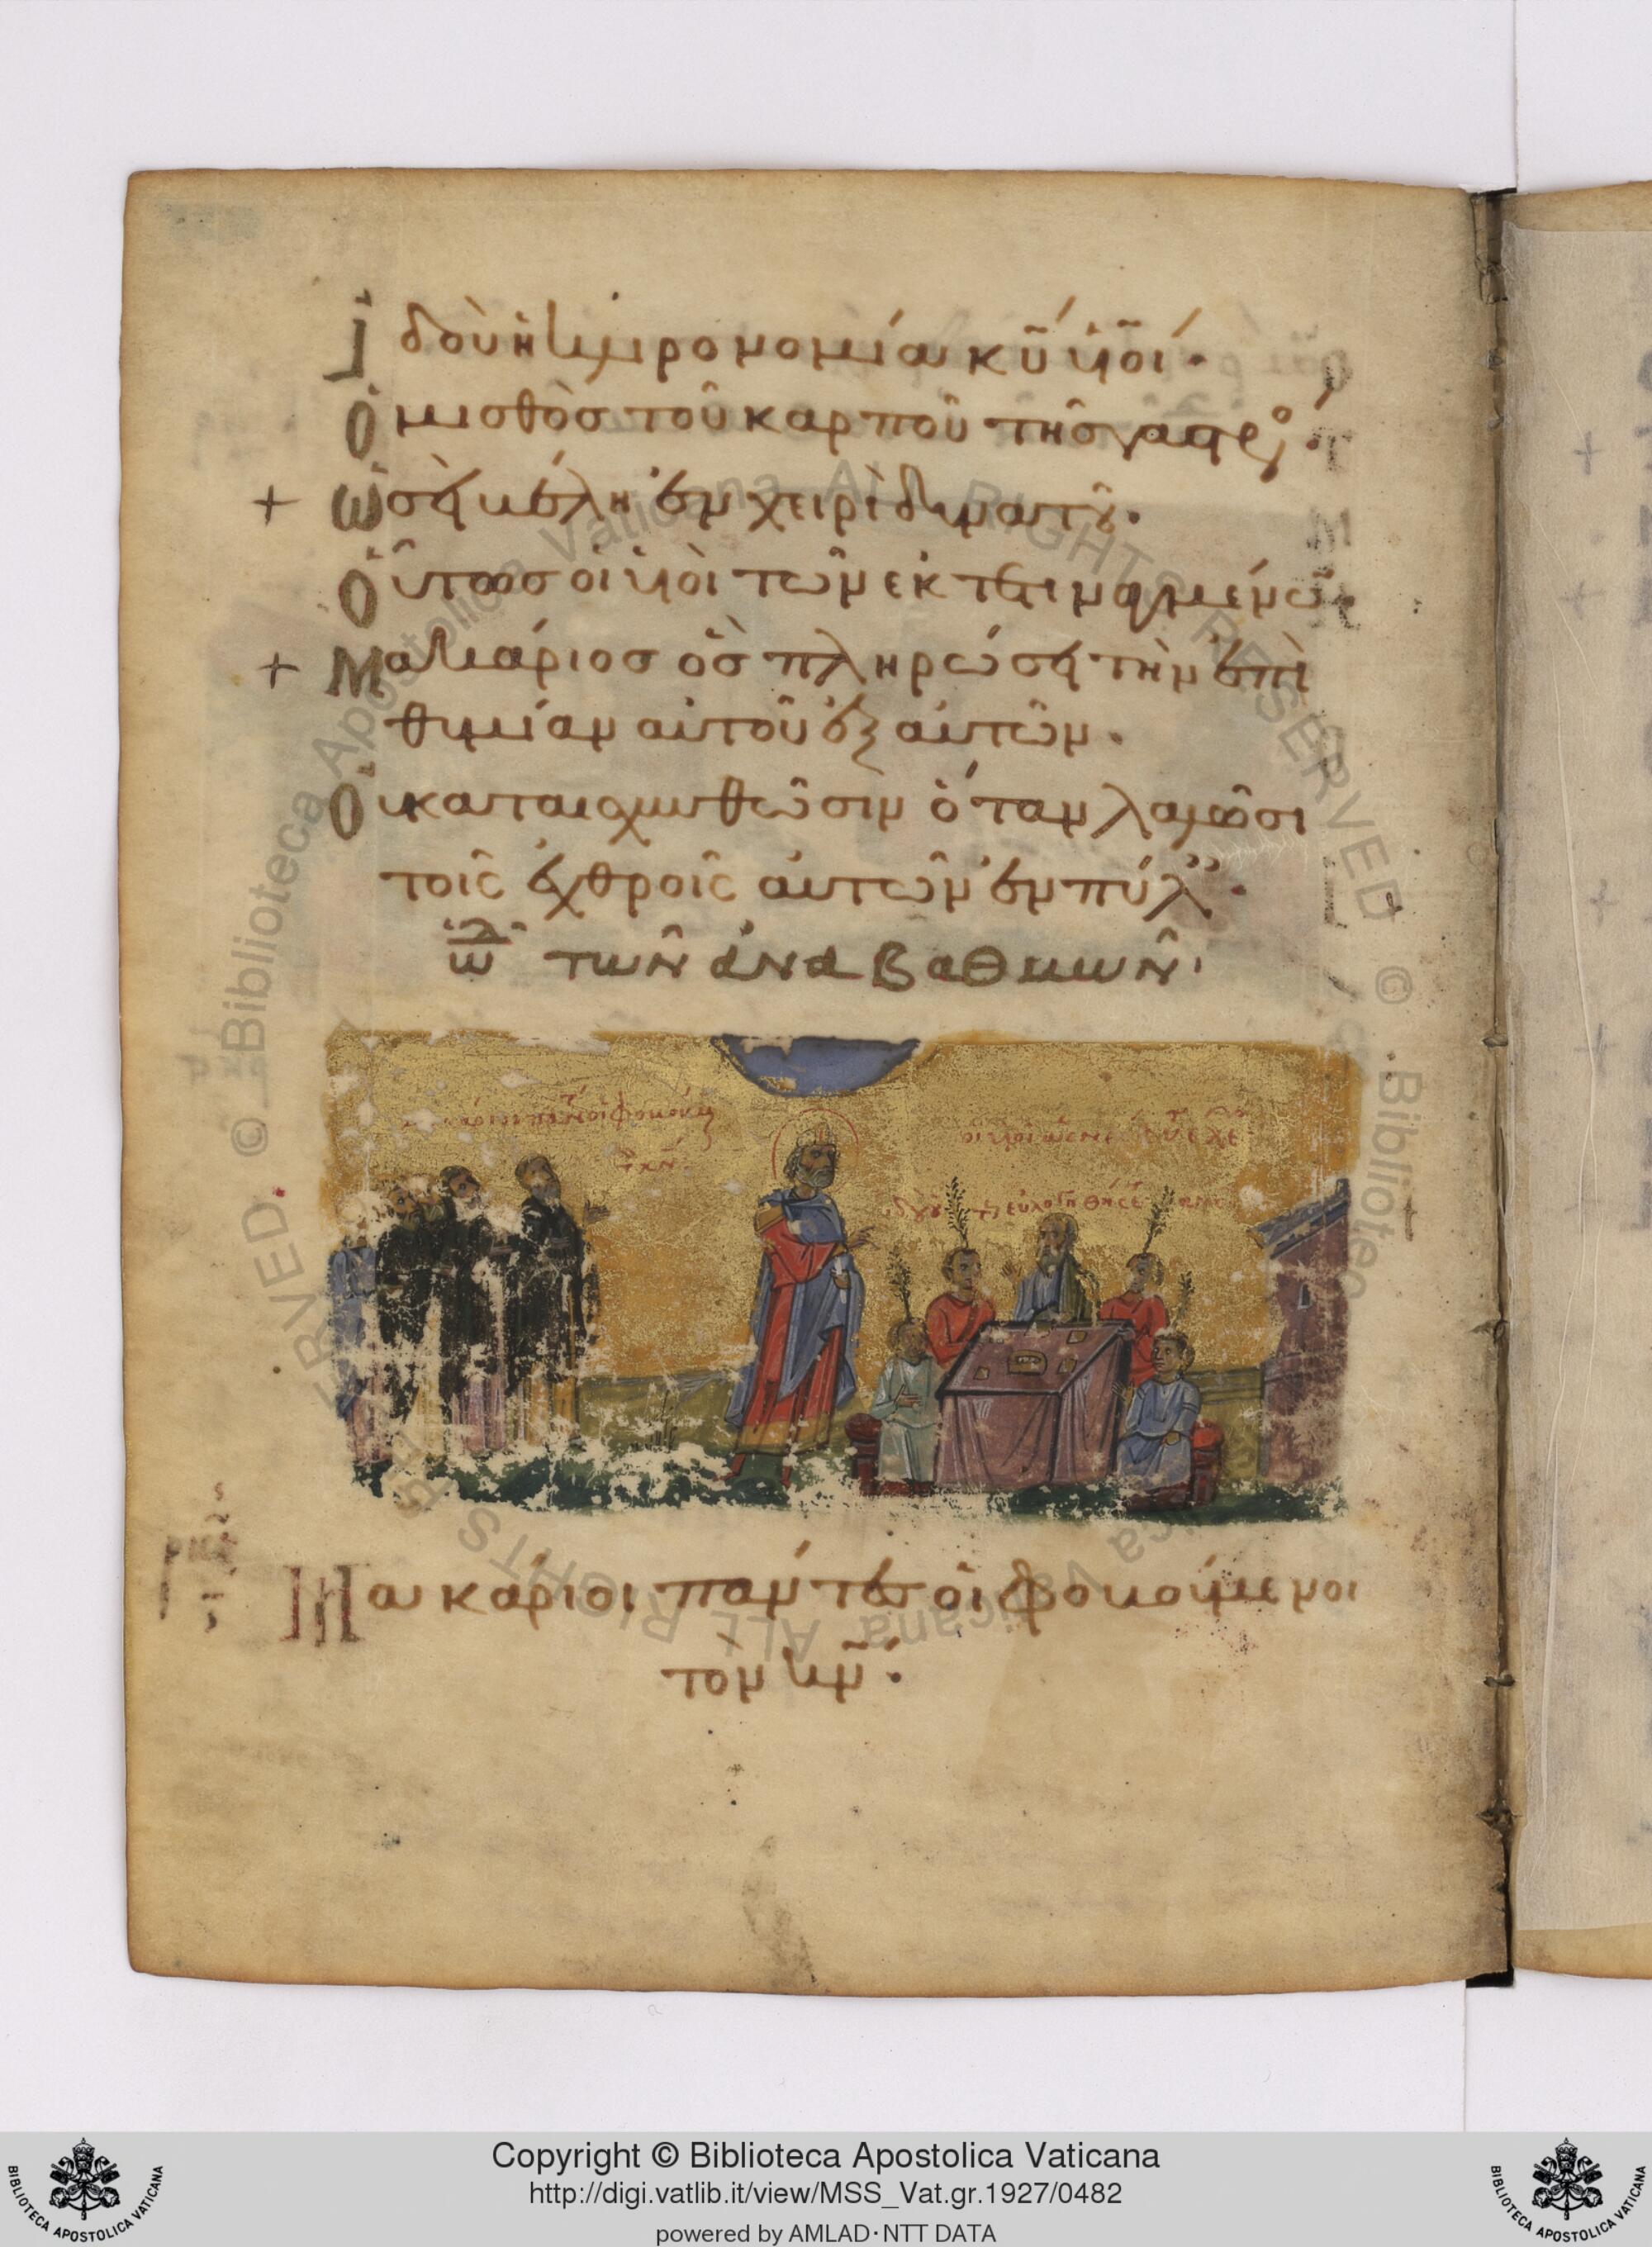 Ἰδοὺ ἡ κληρονομία κ̅υ̅ υἱοί·
Ὁ μισθὸσ τοῦ καρποῦ τῆσ γαστρό·
+ Ὡσεὶ βέλη ἐν χειρὶ δυνατοῦ·
Οὕτωσ οἱ υἱοὶ τῶν ἐκτετιναγμένων·
+ Μακάριοσ ὃσ πληρώσει τὴν ἐπι
θυμίαν αὐτοῦ ἐξ αὐτῶν·
Οὐ καταισχυνθῶσιν ὅταν λαλῶσι
τοῖς ἐχθροῖς αὐτῶν ἐν πύλ·
ὠδ τῶν ἀναβαθμῶν·
οἱ φοβούμ
τ κν
οἱ υἱοί
εὐλογηθήσε
Μακάριοι πάντεσ οἱ φοβούμενοι
τὸν κ̅ν̅·
© Biblioteca Apostolica Vaticana ALL RIGHTS RESERVED
Copyright © Biblioteca Apostolica Vaticana
http://digi.vatlib.it/view/MSS_Vat.gr.1927/0482
powered by AMLAD·NTT DATA
BIBLIOTECA APOSTOLICA VATICANA
BIBLIOTECA APOSTOLICA VATICANA